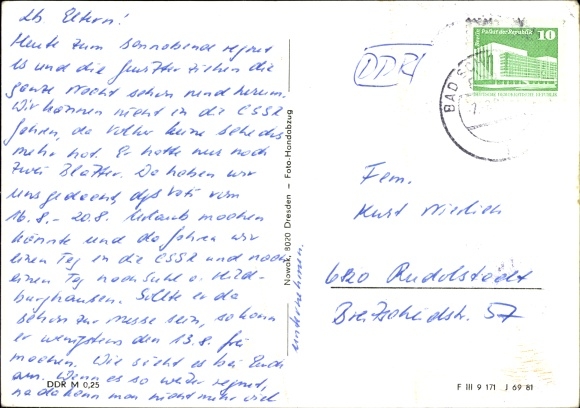 Lb Eltern!
Heute zum Sonnabend regnet
es und die Gewitter ziehen die
ganze Nacht schon rund herum.
Wir können nicht in die CSSR
fahren, da Volker keine Schecks
mehr hat. Er hatte nur noch
zwei Blätter. Da haben wir
uns gedacht, daß Vati vom
16.8.- 20.8. Urlaub machen
könnte und da fahren wir
einen Tag in die CSSR und noch
einen Tag nach Suhl o. Hild-
burghausen. Sollte er da
schon zur Messe sein, so kann
er wenigstens den 13.8. frei
machen. Wie sieht es bei Euch
aus. Wenn es so weiter regnet,
na da kann man nicht mehr viel
unternehmen.
DDR M 0,25
Nowak, 8020 Dresden – Foto-Handabzug
DDR
BAD
Berlin Palast der Republik 10
DEUTSCHE DEMOKRATISCHE REPUBLIK
Fam.
Kurt
6820 Rudolstadt
Breitscheidstr. 57
F III 9 171 J 69 81